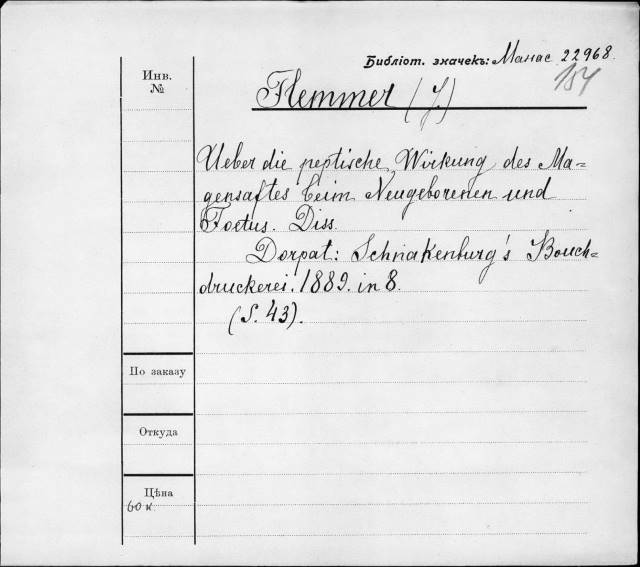 Библіот. значекъ: Манас 22968.
154
Инв. №
Flemmer (J.)
Ueber die peptische Wirkung des Ma-
gensaftes beim Neugeborenen und
Foetus. Diss.
Dorpat: Schnakenburg's Bouch-
druckerei. 1889. in 8.
(S. 43).
По заказу
Откуда
Цѣна
60 к.